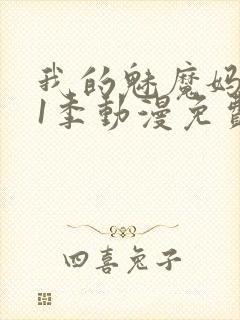 我的魅魔妈
1季動漫免費
四喜兔子